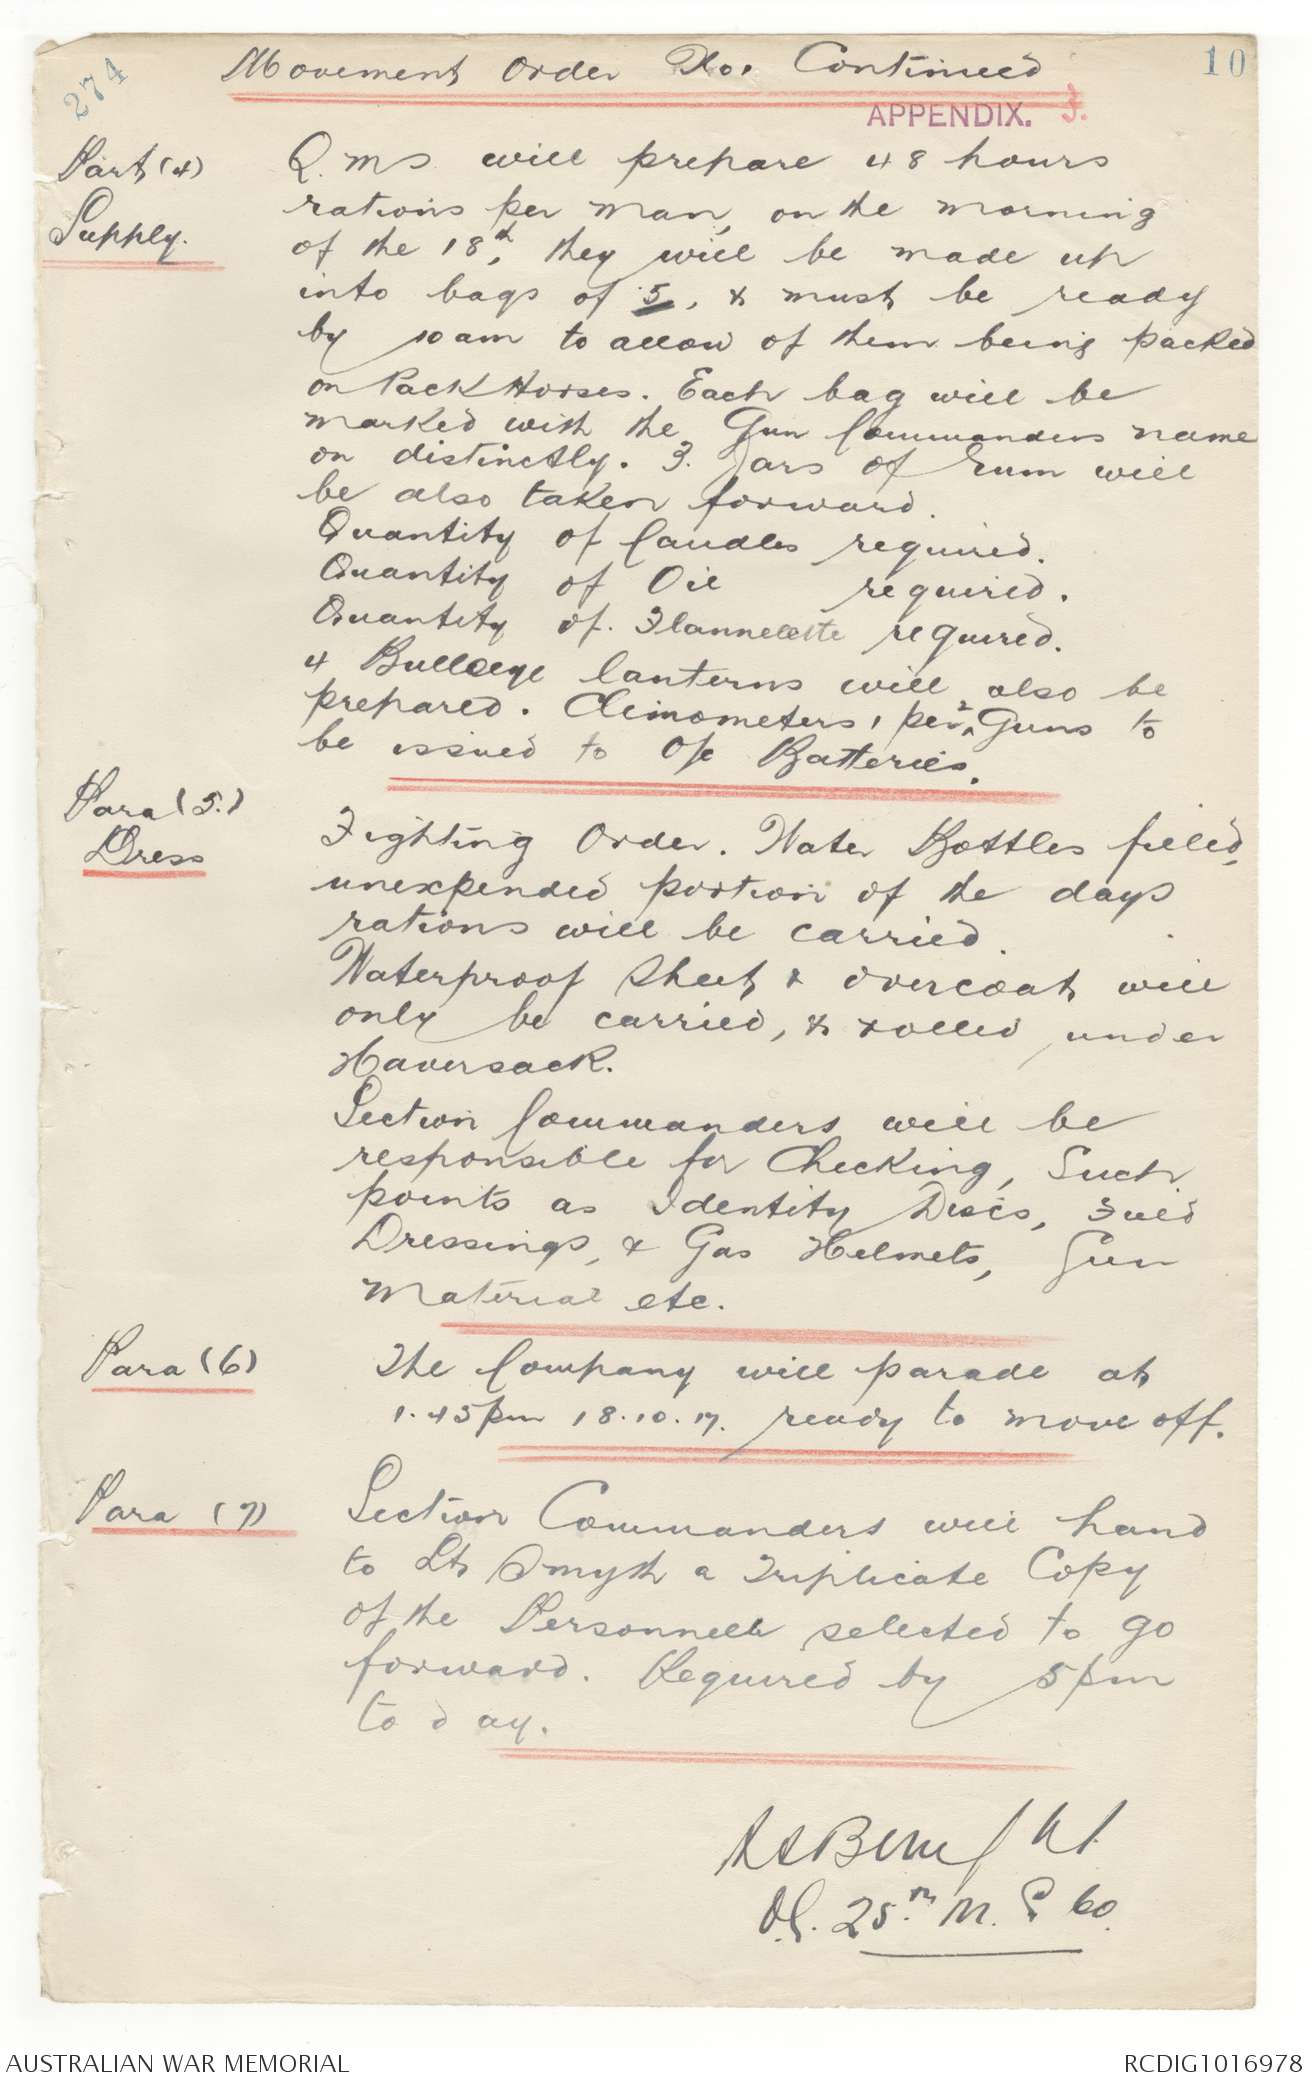 274
10
Movement Order No. Continued
APPENDIX. 3.
Part (4)
Supply.
Q.M.S will prepare 48 hours
rations per man, on the morning
of the 18th, they will be made up
into bags of 5, & must be ready
by 10 am to allow of them being packed
on Pack Horses. Each bag will be
marked with the Gun Commanders name
on distinctly. 3. Jars of Rum will
be also taken forward.
Quantity of Candles required.
Quantity of Oil required.
Quantity of. Flannelette required.
4 Bullseye lanterns will also be
prepared. Clinometers 1 per 2 Guns to
be issued to O/c Batteries.
Para (5.)
Dress
Fighting Order. Water Bottles filled,
unexpended portion of the days
rations will be carried.
Waterproof Sheet & overcoat will
only be carried, & rolled under
Haversack.
Section Commanders will be
responsible for Checking, Such
points as Identity Discs, Field
Dressings, & Gas Helmets, Gun
Material etc.
Para (6)
The Company will parade at
1.45 pm 18.10.17. ready to move off.
Para (7)
Section Commanders will hand
to Lt Smyth a Triplicate Copy
of the Personnell selected to go
forward. Required by 5 pm
to day.
O.C. 25th M. G Co.
AUSTRALIAN WAR MEMORIAL
RCDIG1016978